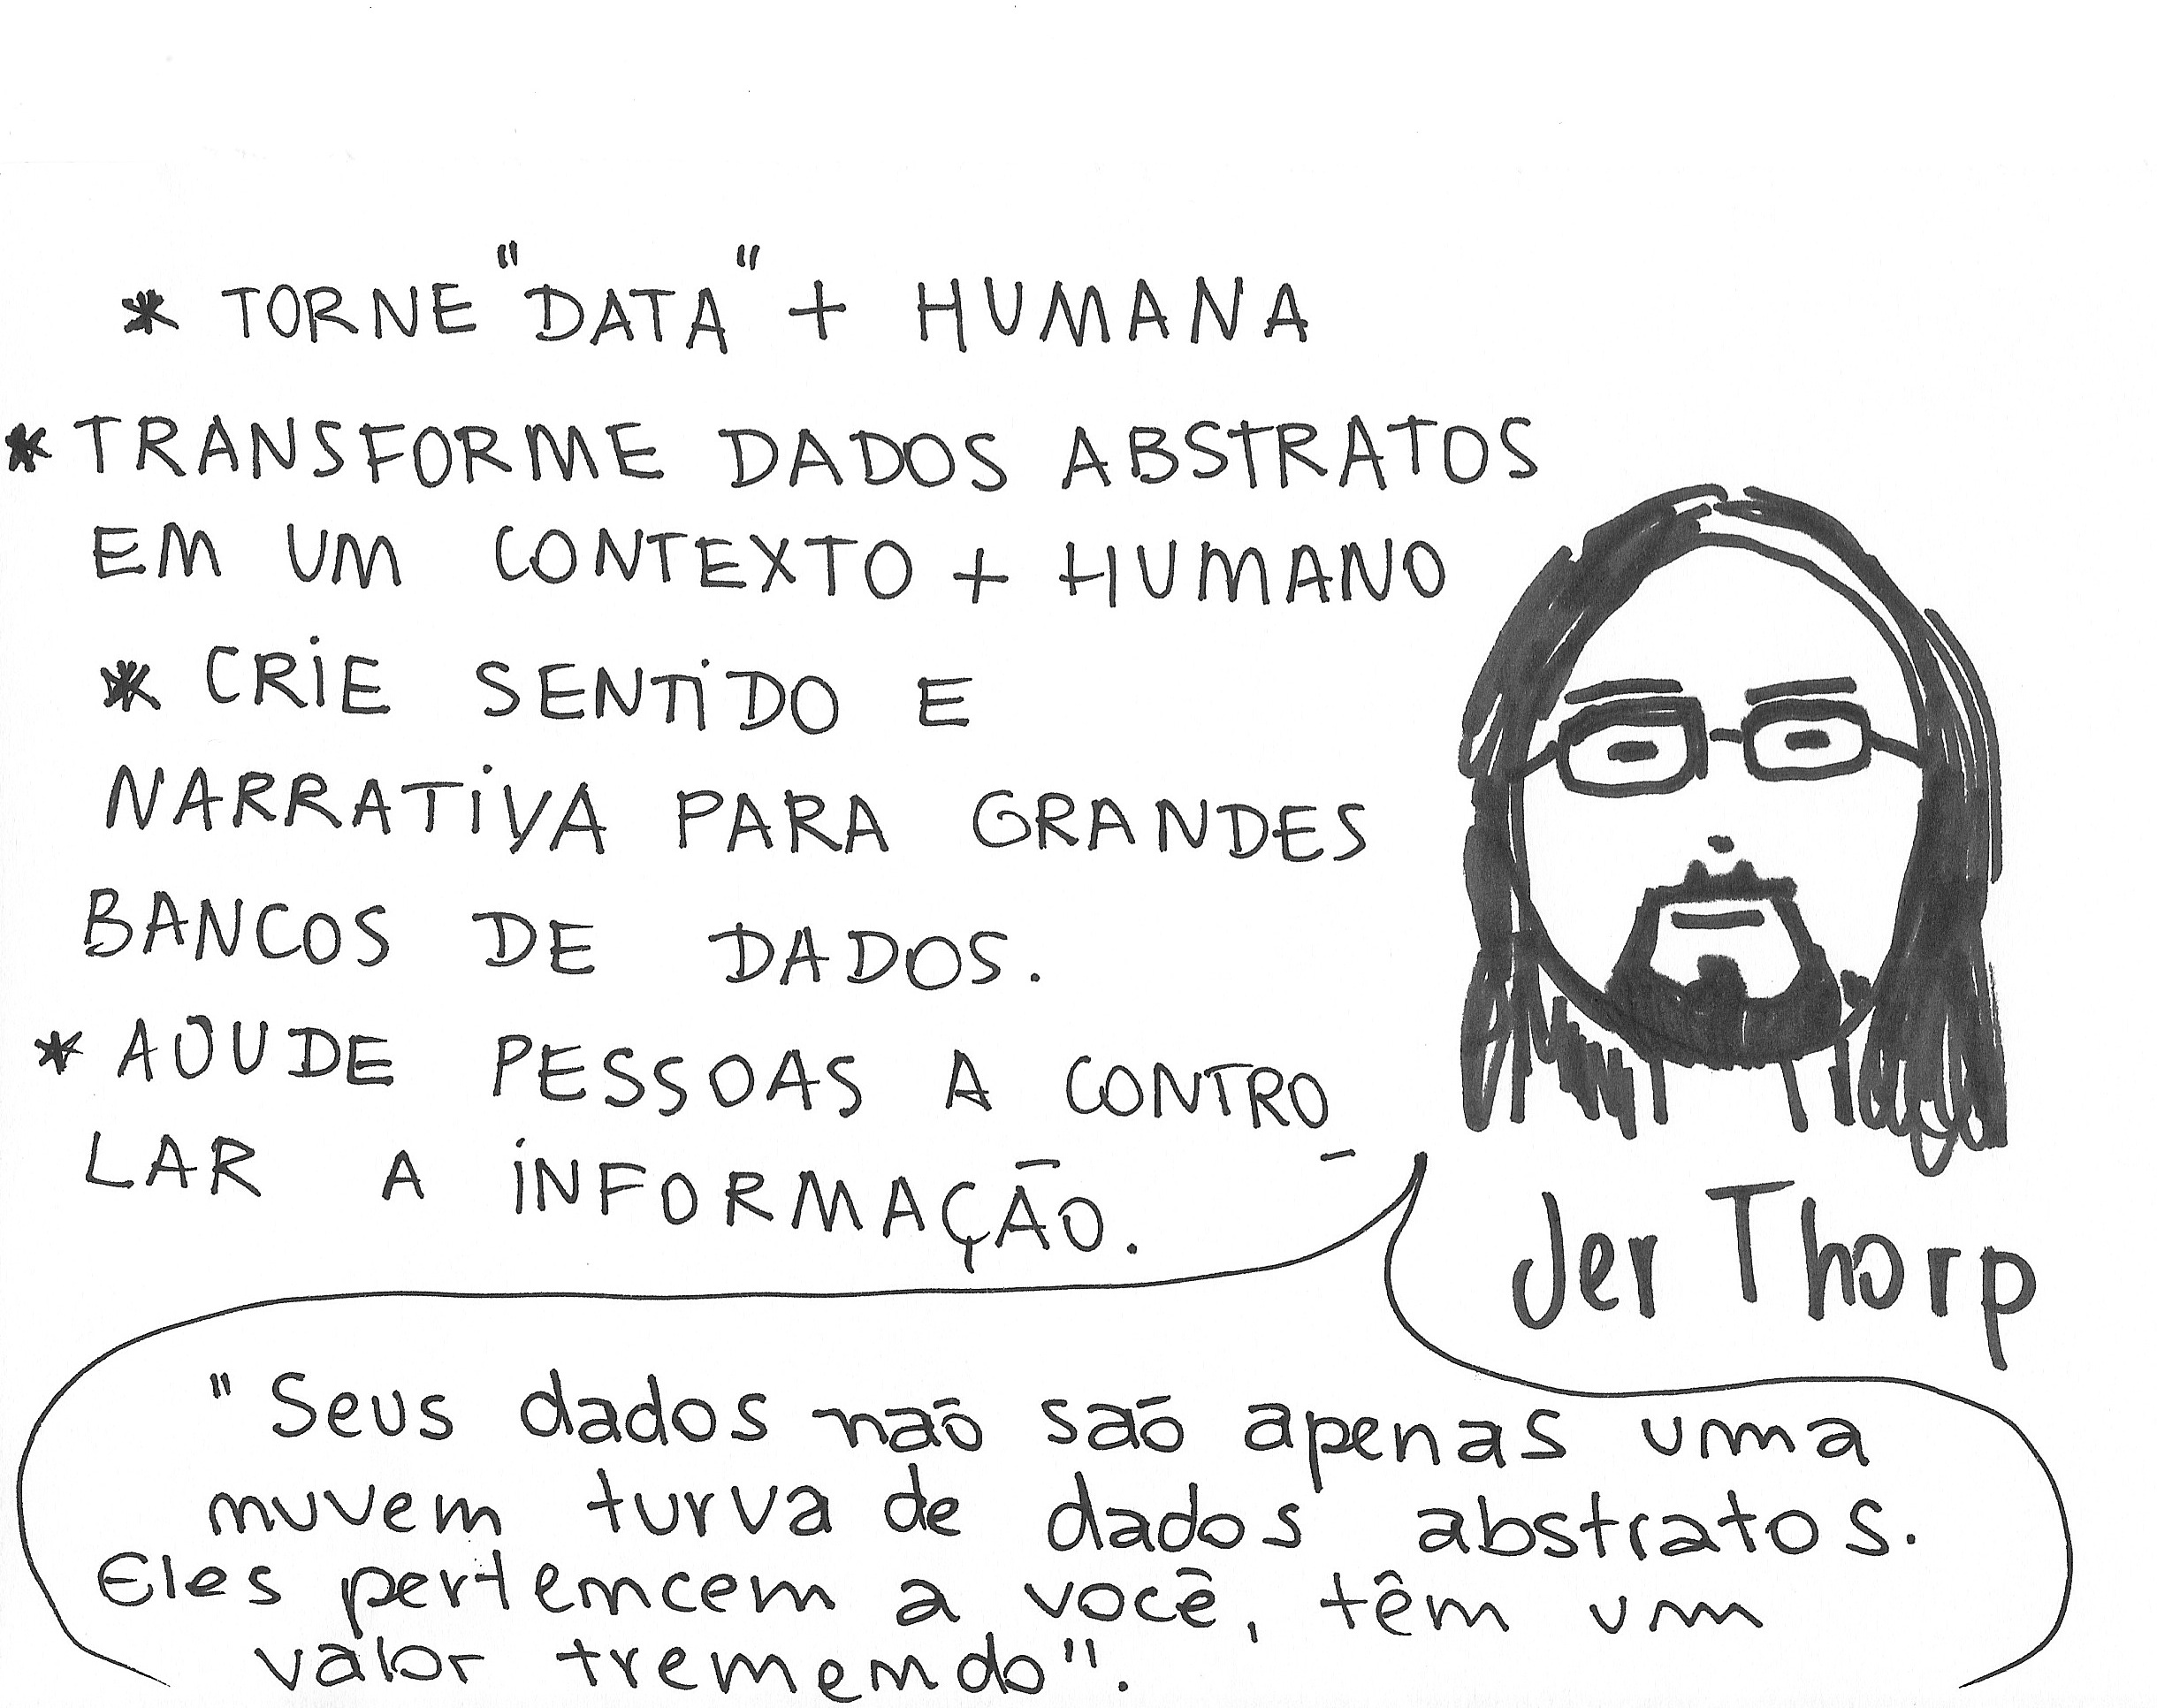 * TORNE "DATA" + HUMANA
* TRANSFORME DADOS ABSTRATOS
EM UM CONTEXTO + HUMANO
* CRIE SENTIDO E
NARRATIVA PARA GRANDES
BANCOS DE DADOS.
* AJUDE PESSOAS A CONTRO-
LAR A INFORMAÇÃO.
Jer Thorp
"Seus dados não são apenas uma
nuvem turva de dados abstratos.
Eles pertencem a você, têm um
valor tremendo".